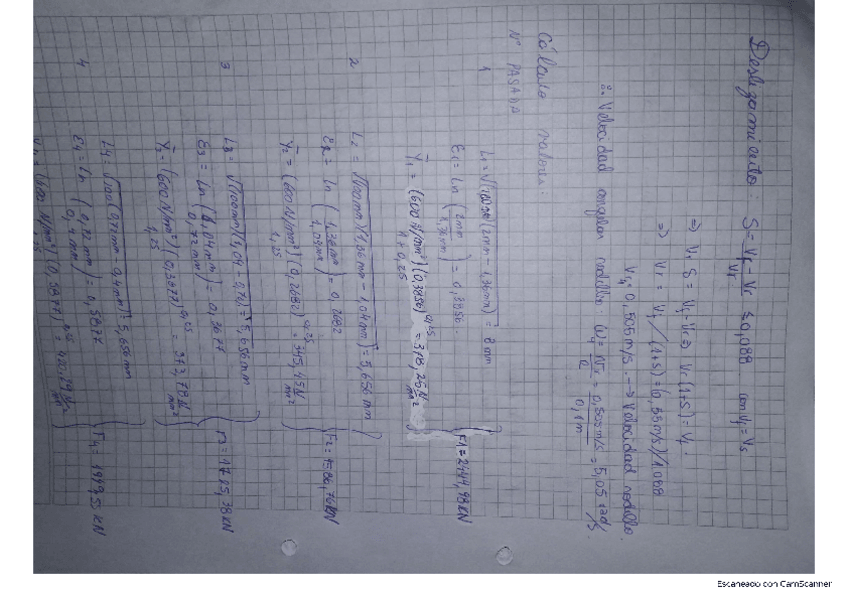 Deslizamiento: S = (Vf - Vr)/Vr ≤ 0,088 con Vf = Vs
⇒ Vr S = Vf - Vr ⇒ Vr(1+S) = Vf.
⇒ Vr = Vf/(1+S) = (0,55m/s)/1,088
Vr = 0,505m/s. → Velocidad rodillo.
∴ Velocidad angular rodillo: = 0,505m/s / 0,1m = 5,05 rad/s.
Cálculo
Nº PASADA
1 L1 = = 8mm
E1 = Ln (2mm / 1,36mm) = 0,3856.
Y1 = (600 N/mm²)(0,3856)^0,25 / 1+0,25 = 378,25 N/mm²
F1 = 2444,98 KN
2 L2 = √(100mm)(1,36mm - 1,04mm) = 5,656mm
E2 = Ln (1,36mm / 1,04mm) = 0,2682
Y2 = (600 N/mm²)(0,2682)^0,25 / 1,25 = 345,45 N/mm²
F2 = 1586,76KN
3 L3 = √(100mm)(1,04-0,72) = 5,656mm
E3 = Ln (1,04mm / 0,72mm) = 0,3677
Y3 = (600 N/mm²)(0,3677)^0,25 / 1,25 = 373,78 N/mm²
F3 = 1725,38KN
4 L4 = √100(0,72mm - 0,4mm) = 5,656mm
E4 = Ln (0,72mm / 0,4mm) = 0,5877
(600 N/mm²)(0,5877)
Escaneado con CamScanner